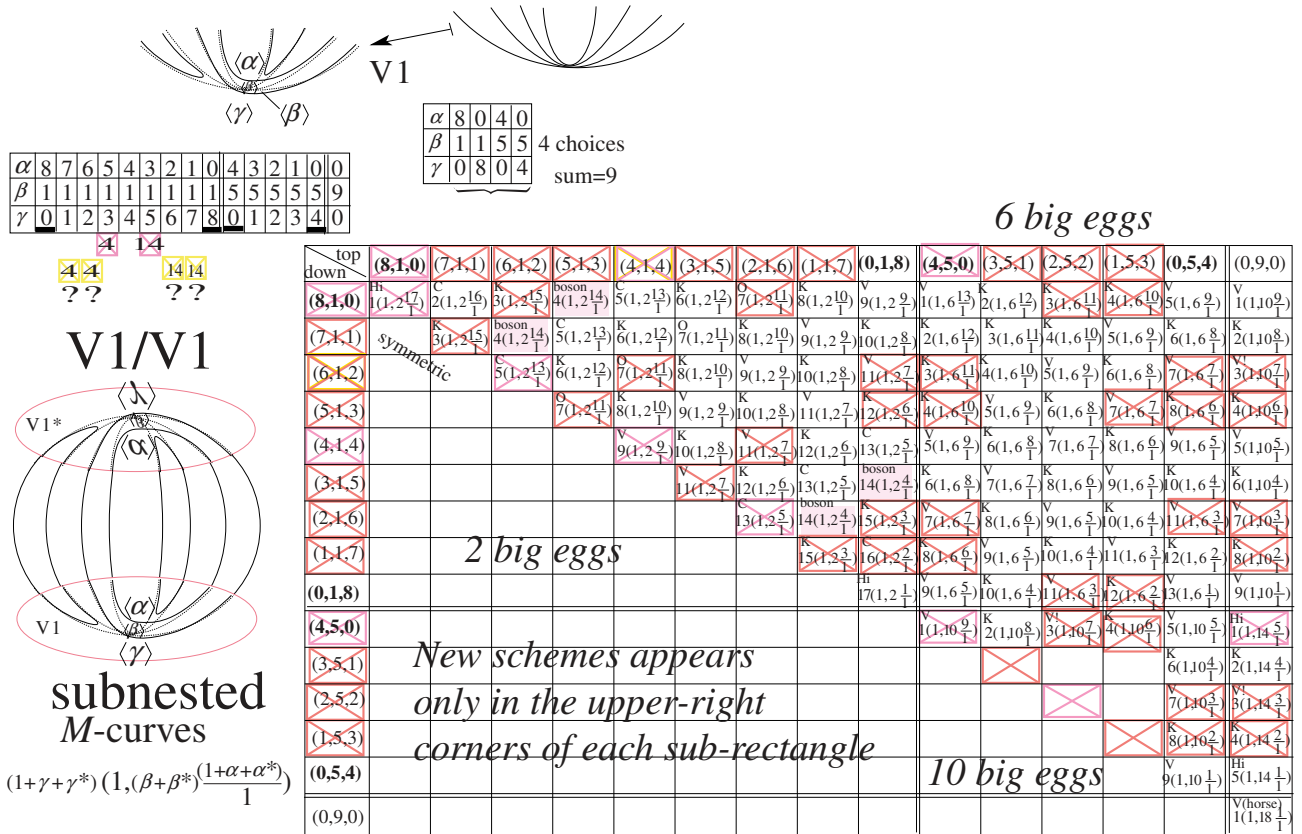 ⟨α⟩
⟨β⟩
⟨γ⟩ ⟨β⟩
V1
α 8 0 4 0
β 1 1 5 5 4 choices
γ 0 8 0 4 sum=9
α 8 7 6 5 4 3 2 1 0 4 3 2 1 0 0
β 1 1 1 1 1 1 1 1 1 5 5 5 5 5 9
γ 0 1 2 3 4 5 6 7 8 0 1 2 3 4 0
4 14
4 4 14 14
? ? ? ?
V1/V1
V1*
⟨α⟩
⟨β⟩
V1
⟨γ⟩
subnested
M-curves
(1+γ+γ*)(1,(β+β*)\frac{(1+α+α*)}{1})
6 big eggs
top
down
(8,1,0) (7,1,1) (6,1,2) (5,1,3) (4,1,4) (3,1,5) (2,1,6) (1,1,7) (0,1,8) (4,5,0) (3,5,1) (2,5,2) (1,5,3) (0,5,4) (0,9,0)
(8,1,0) Hi 1(1,2 17/1) C 2(1,2 16/1) K 3(1,2 15/1) boson 4(1,2 14/1) C 5(1,2 13/1) K 6(1,2 12/1) O 7(1,2 11/1) K 8(1,2 10/1) V 9(1,2 9/1) V 1(1,6 13/1) K 2(1,6 12/1) K 3(1,6 11/1) K 4(1,6 10/1) V 5(1,6 9/1) V 1(1,10 9/1)
(7,1,1) symmetric K 3(1,2 15/1) boson 4(1,2 14/1) C 5(1,2 13/1) K 6(1,2 12/1) O 7(1,2 11/1) K 8(1,2 10/1) V 9(1,2 9/1) K 10(1,2 8/1) K 2(1,6 12/1) K 3(1,6 11/1) K 4(1,6 10/1) V 5(1,6 9/1) K 6(1,6 8/1) K 2(1,10 8/1)
(6,1,2) C 5(1,2 13/1) K 6(1,2 12/1) O 7(1,2 11/1) K 8(1,2 10/1) V 9(1,2 9/1) K 10(1,2 8/1) V 11(1,2 7/1) K 3(1,6 11/1) K 4(1,6 10/1) V 5(1,6 9/1) K 6(1,6 8/1) V 7(1,6 7/1) V! 3(1,10 7/1)
(5,1,3) O 7(1,2 11/1) K 8(1,2 10/1) V 9(1,2 9/1) K 10(1,2 8/1) V 11(1,2 7/1) K 12(1,2 6/1) K 4(1,6 10/1) V 5(1,6 9/1) K 6(1,6 8/1) V 7(1,6 7/1) K 8(1,6 6/1) K 4(1,10 6/1)
(4,1,4) V 9(1,2 9/1) K 10(1,2 8/1) V 11(1,2 7/1) K 12(1,2 6/1) C 13(1,2 5/1) V 5(1,6 9/1) K 6(1,6 8/1) V 7(1,6 7/1) K 8(1,6 6/1) V 9(1,6 5/1) V 5(1,10 5/1)
(3,1,5) V 11(1,2 7/1) K 12(1,2 6/1) C 13(1,2 5/1) boson 14(1,2 4/1) K 6(1,6 8/1) V 7(1,6 7/1) K 8(1,6 6/1) V 9(1,6 5/1) K 10(1,6 4/1) K 6(1,10 4/1)
(2,1,6) C 13(1,2 5/1) boson 14(1,2 4/1) K 15(1,2 3/1) V 7(1,6 7/1) K 8(1,6 6/1) V 9(1,6 5/1) K 10(1,6 4/1) V 11(1,6 3/1) V 7(1,10 3/1)
(1,1,7) 2 big eggs K 15(1,2 3/1) C 16(1,2 2/1) K 8(1,6 6/1) V 9(1,6 5/1) K 10(1,6 4/1) V 11(1,6 3/1) K 12(1,6 2/1) K 8(1,10 2/1)
(0,1,8) Hi 17(1,2 1/1) V 9(1,6 5/1) K 10(1,6 4/1) V 11(1,6 3/1) K 12(1,6 2/1) V 13(1,6 1/1) V 9(1,10 1/1)
(4,5,0) V 1(1,10 9/1) K 2(1,10 8/1) V! 3(1,10 7/1) K 4(1,10 6/1) V 5(1,10 5/1) Hi 1(1,14 5/1)
(3,5,1) New schemes appears K 6(1,10 4/1) K 2(1,14 4/1)
(2,5,2) only in the upper-right V 7(1,10 3/1) V! 3(1,14 3/1)
(1,5,3) corners of each sub-rectangle K 8(1,10 2/1) K 4(1,14 2/1)
(0,5,4) 10 big eggs V 9(1,10 1/1) Hi 5(1,14 1/1)
(0,9,0) V(horse) 1(1,18 1/1)